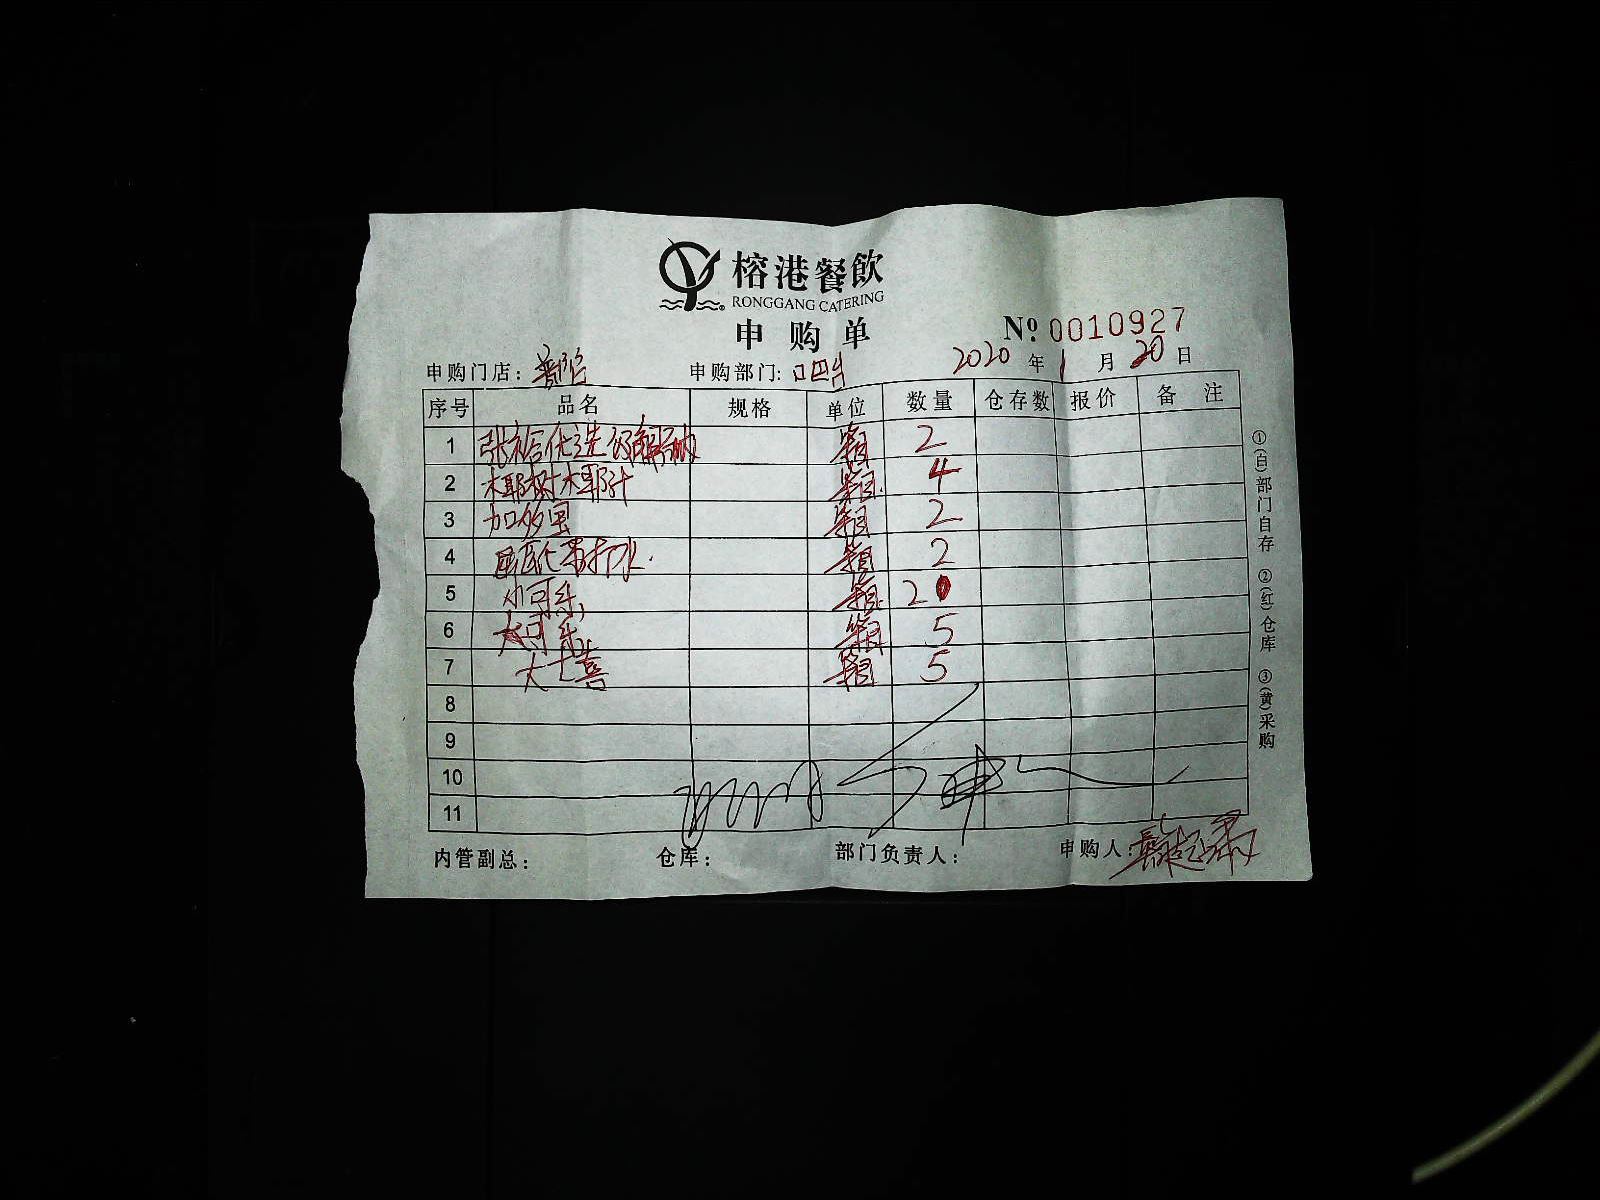 榕港餐飲
RONGGANG CATERING
申购单
№ 0010927
申购门店：普陀 申购部门：吧台 2020年1月20日
序号 品名 规格 单位 数量 仓存数 报价 备注
1 张裕优选级解百纳 箱 2
2 椰树椰汁 箱 4
3 加多宝 箱 2
4 苏打水 箱 2
5 小可乐 箱 20
6 大可乐 箱 5
7 大七喜 箱 5
8
9
10
11
内管副总： 仓库： 部门负责人： 申购人：
①(白)部门自存 ②(红)仓库 ③(黄)采购